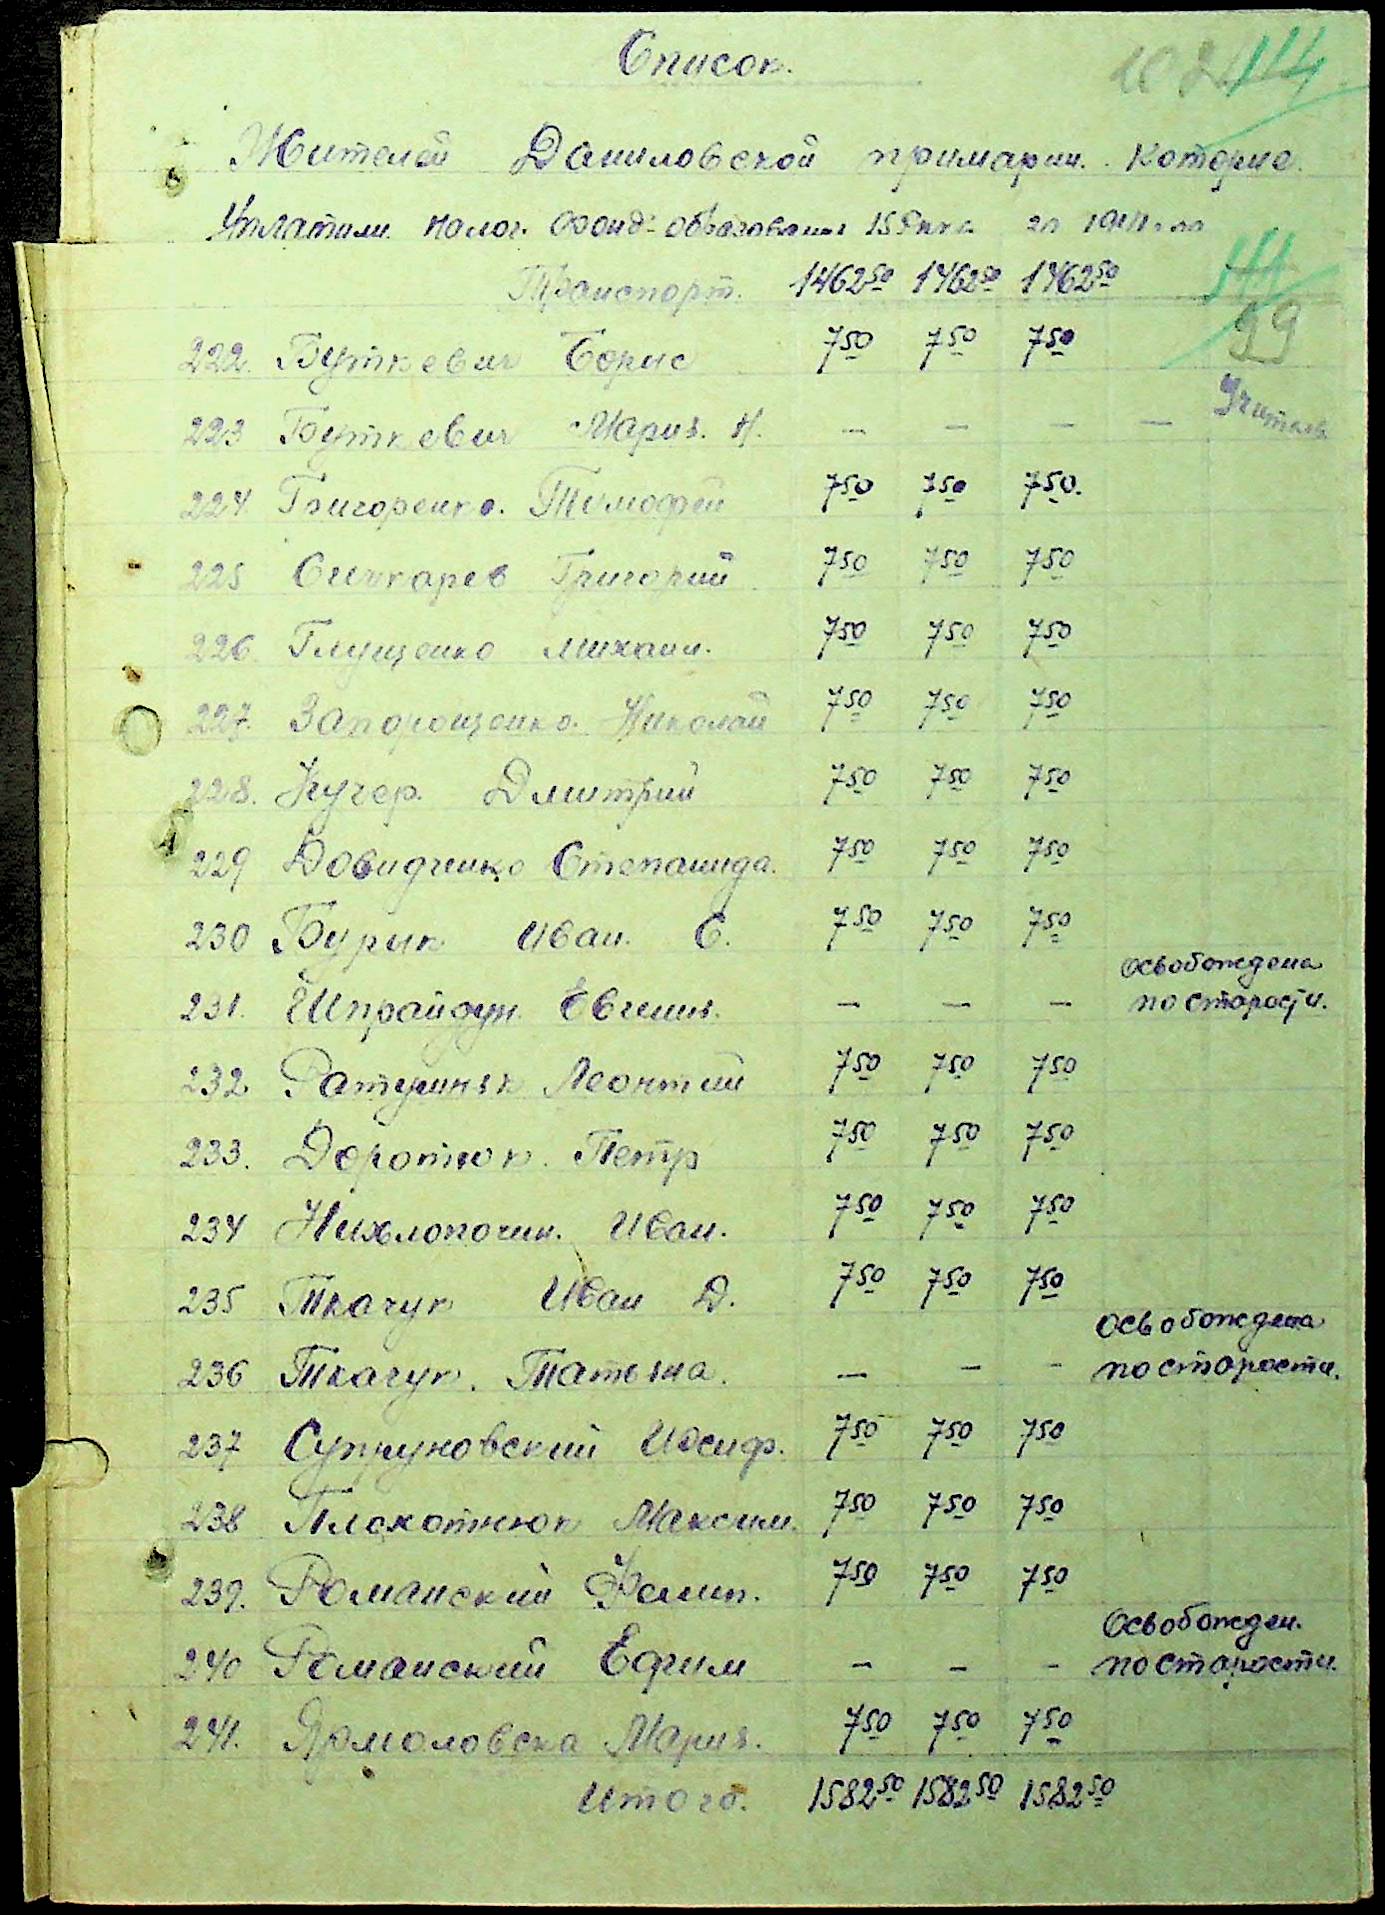 Список.
114
Жителей Даниловской примарии. Которие.
Уплатили налог. Фонд образования за
99
Транспорт. 1462 50 1462 50 1462 50
222. Буткевич Борис 7 50 7 50 7 50
223 Буткевич Мария. Н. — — — — Учитель
224 Григоренко. Тимофей 7 50 7 50 7 50.
225 Сичкарев Григорий 7 50 7 50 7 50
226. Глущенко михаил. 7 50 7 50 7 50
227. Запорощенко. Николай 7 50 7 50 7 50
228. Кучер. Дмитрий 7 50 7 50 7 50
229 Довидченко Степанида. 7 50 7 50 7 50
230 Бурик Иван. С. 7 50 7 50 7 50
Освобождена
231. Евгения. — — — по старости.
232 Леонтий 7 50 7 50 7 50
233. Доротюк. Петр 7 50 7 50 7 50
234 Нихлопочин. Иван. 7 50 7 50 7 50
235 Ткачук Иван Д. 7 50 7 50 7 50
Освобождена
236 Ткачук. Татьяна. — — — по старости.
237 Супруновский Иосиф. 7 50 7 50 7 50
238 Плохотнюк Максим. 7 50 7 50 7 50
239. Романский Филип. 7 50 7 50 7 50
Освобожден.
240 Романский Ефим — — — по старости.
241. Ярмоловска Мария. 7 50 7 50 7 50
Итого. 1582 50 1582 50 1582 50